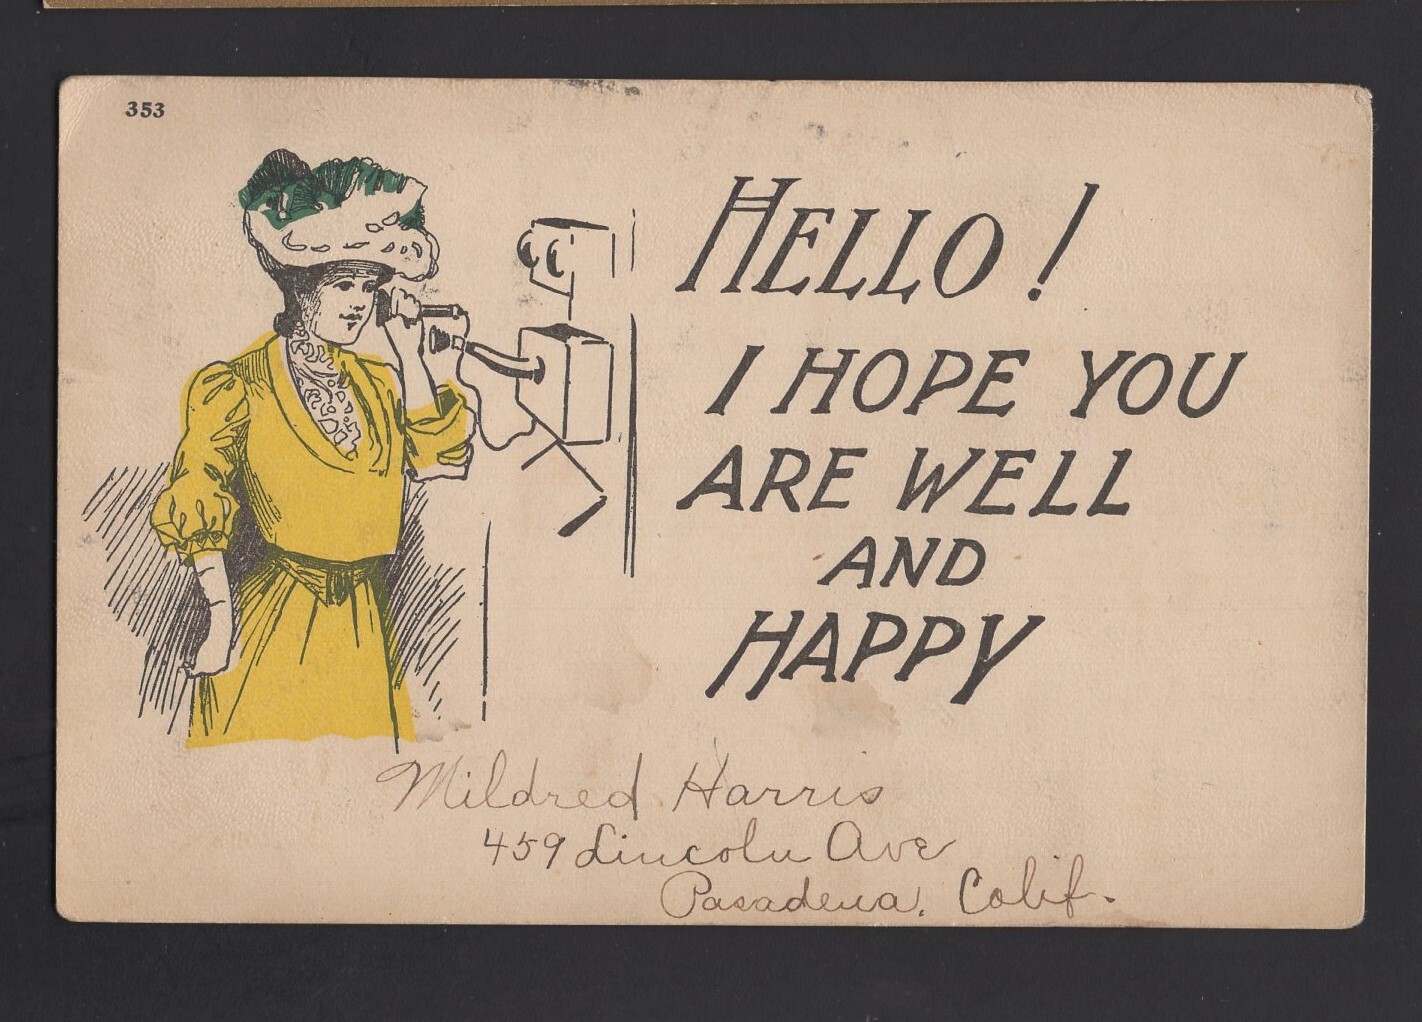 353
HELLO!
I HOPE YOU
ARE WELL
AND
HAPPY
Mildred Harris
459 Lincoln Ave
Pasadena, Calif.